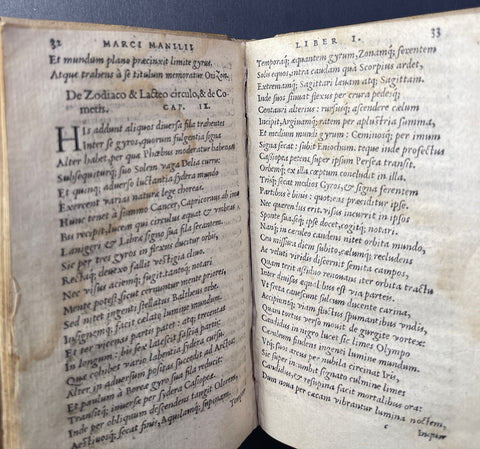 32 MARCI MANILII
Et mundum plano præcinxit limite gyrus,
Atque trahens à se titulum memoratur Ori Zon.
De Zodiaco & Lacteo circulo, & de Co-
metis. CAP. IX.
HIs addunt alíquos diuersa fila trahentes
Inter se gyros, quorum fulgentia signa
Alter habet, per quæ Phœbus moderatur habenas
Subsequiturq; suo Solem uaga Delia curru:
Et quinq; aduerso luctantia sydera mundo
Exercent uarias naturæ lege choreas.
Hunc tenet à summo Cancer, Capricornus ab imo
Bis recipit, lucem qui circulus æquat & umbras
Lanigeri & Libræ signo sua fila secantem
Sic per tres gyros in flexus ducitur orbis,
Rectaq; deuexo fallit uestigia cliuo.
Nec uisus aciemq; fugit, tantoq; notari
Mente potest, sicut cernuntur mente priores,
Sed nitet ingenti stellatus Baltheus orbe,
Insignemq; facit cælato lumine mundum.
Et ter uicenas partes patet: atq; trecentas
In longum: bis sex latescit fascia partes
Quæ cohibet uario labentia sidera cursu.
Alter in aduersum positus succedit ad Arctos
Et paulum à Boreæ gyro sua fila reducit:
Transitq; inuersæ per sydera Cassiopeæ,
Inde per obliquum descendens tangit Olorem,
Æstiuosq; secat fines, Aquilamq; supinam,
Tempo-
LIBER I. 33
Temporaq; æquantem gyrum, Zonamq; ferentem
Solis equos, intra caudam qua Scorpius ardet,
Extremamq; Sagittari leuam atq; Sagittam.
Inde suos sinuat flexus per crura pedesq;
Centauri alterius: rursusq; ascendere cælum
Incipit, Argiuamq; ratem per aplustria summa,
Et medium mundi gyrum: Geminosq; per imum
Signa secat: subit Eniochum, teque inde profectus
Cassiopea petens, super ipsum Persea transit.
Orbemq; ex illa cœptum concludit in illa.
Trisq; secat medios Gyros, & signa ferentem
Partibus è binis: quoties præciditur ipse.
Nec quærendus erit, uisus incurrit in ipsos
Sponte sua, seq; ipse docet, cogitq; notari.
Nanq; in cæruleo candens nitet orbita mundo,
Ceu missura diem subito, cælumq; recludens
Ac ueluti uiridis discernit semita campos,
Quam terit assiduo renouans iter orbita tractu
Inter diuisas æquabilis est uia parteis.
Vt freta canescunt sulcum ducente carina,
Accipiuntq; uiam fluctus spumantibus undis,
Quam tortus uerso mouit de gurgite uortex:
Candidus in nigro lucet sic limes Olympo
Cæruleum findens ingenti lumine mundum.
Vtq; suos arcus per nubila circinat Iris,
Sic super incumbit signato culmine limes
Candidus, & resupina facit mortalibus ora:
Dum noua per cæcam uibrantur lumina noctem,
c Inqui-